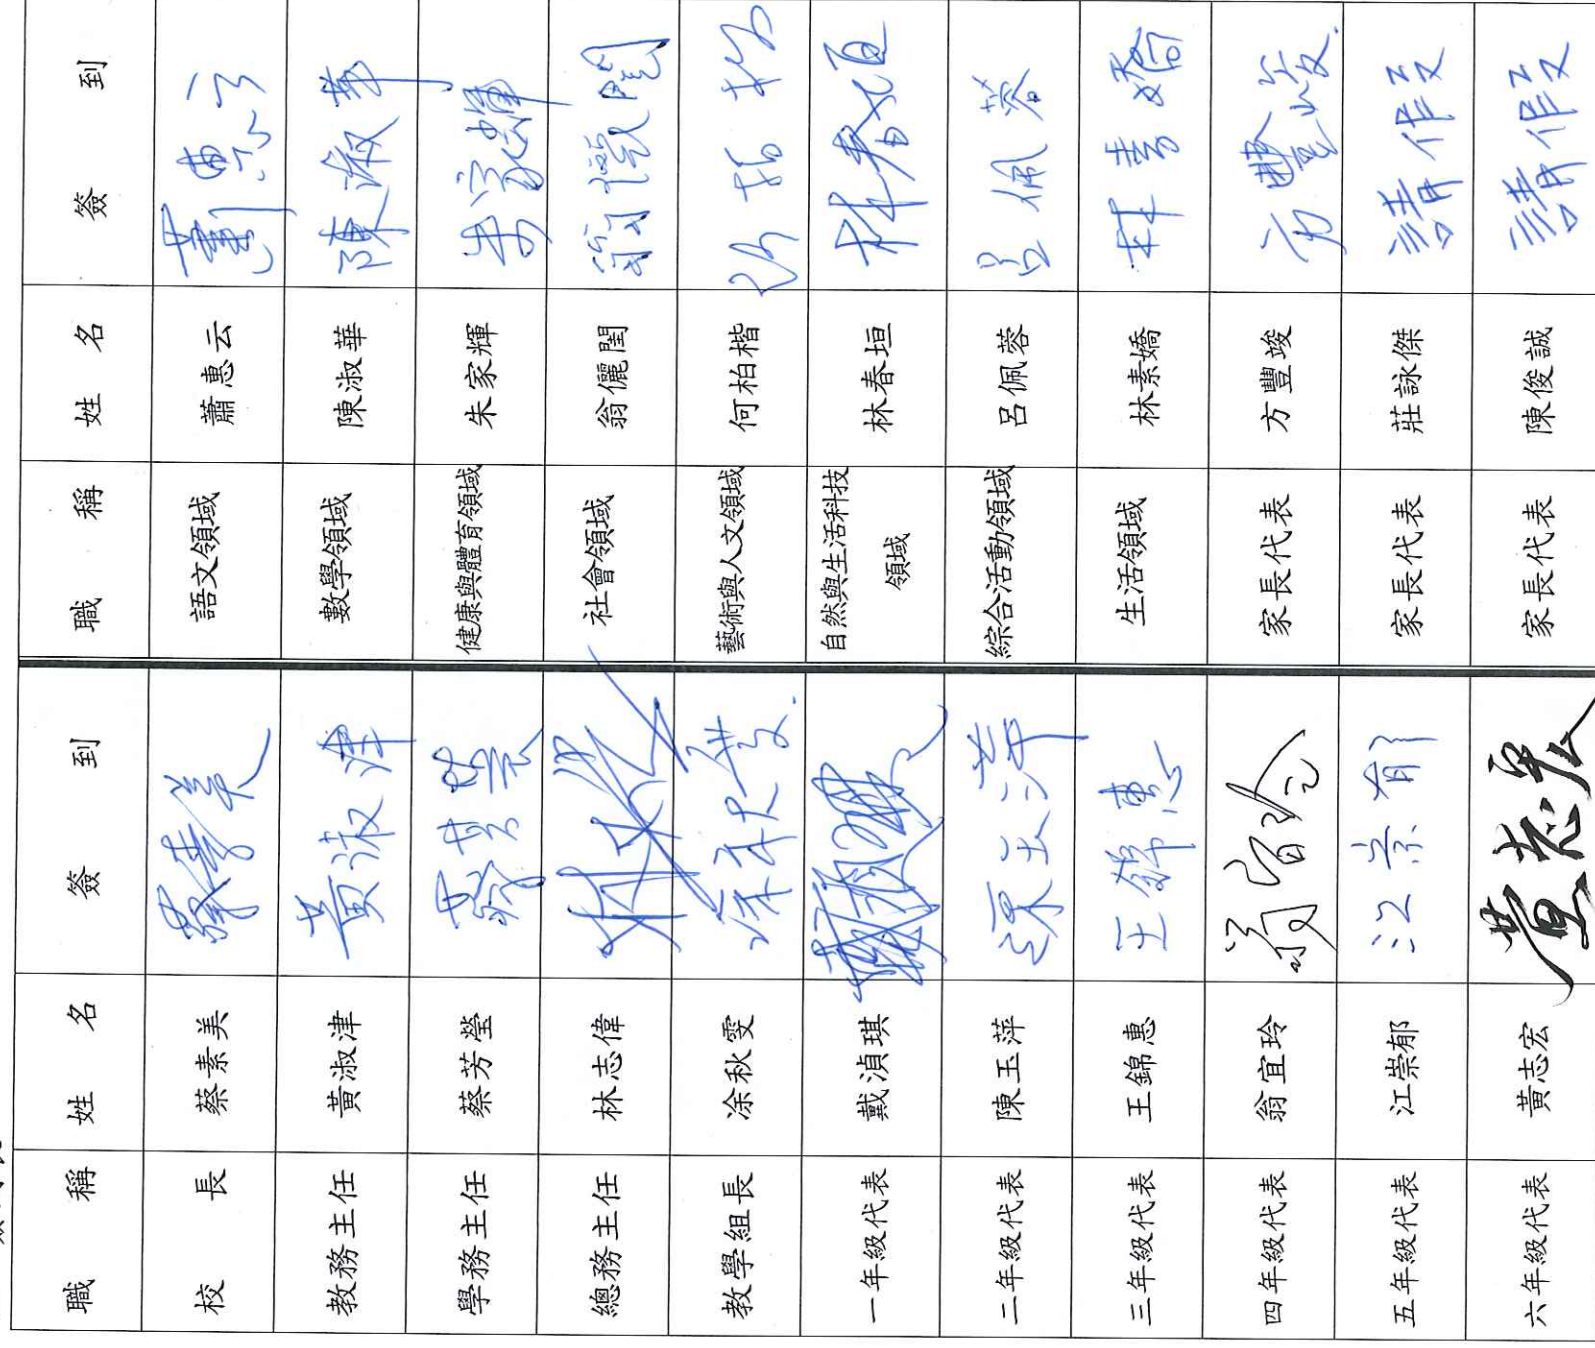 職 稱 姓 名 簽 到 職 稱 姓 名 簽 到
校 長 蔡素美 蔡素美 語文領域 蕭惠云 蕭惠云
教務主任 黃淑津 黃淑津 數學領域 陳淑華 陳淑華
學務主任 蔡芳瑩 蔡芳瑩 健康與體育領域 朱家輝 朱家輝
總務主任 林志偉 社會領域 翁儷閨 翁儷閨
教學組長 凃秋雯 藝術與人文領域 何柏楷
一年級代表 戴湞琪 自然與生活科技 林春垣 林春垣
領域
二年級代表 陳玉萍 陳玉萍 綜合活動領域 呂佩蓉 呂佩蓉
三年級代表 王錦惠 王錦惠 生活領域 林素嬌 林素嬌
四年級代表 翁宜玲 翁宜玲 家長代表 方豐竣 方豐竣
五年級代表 江崇郁 江崇郁 家長代表 莊詠傑 請假
六年級代表 黃志宏 黃志宏 家長代表 陳俊誠 請假